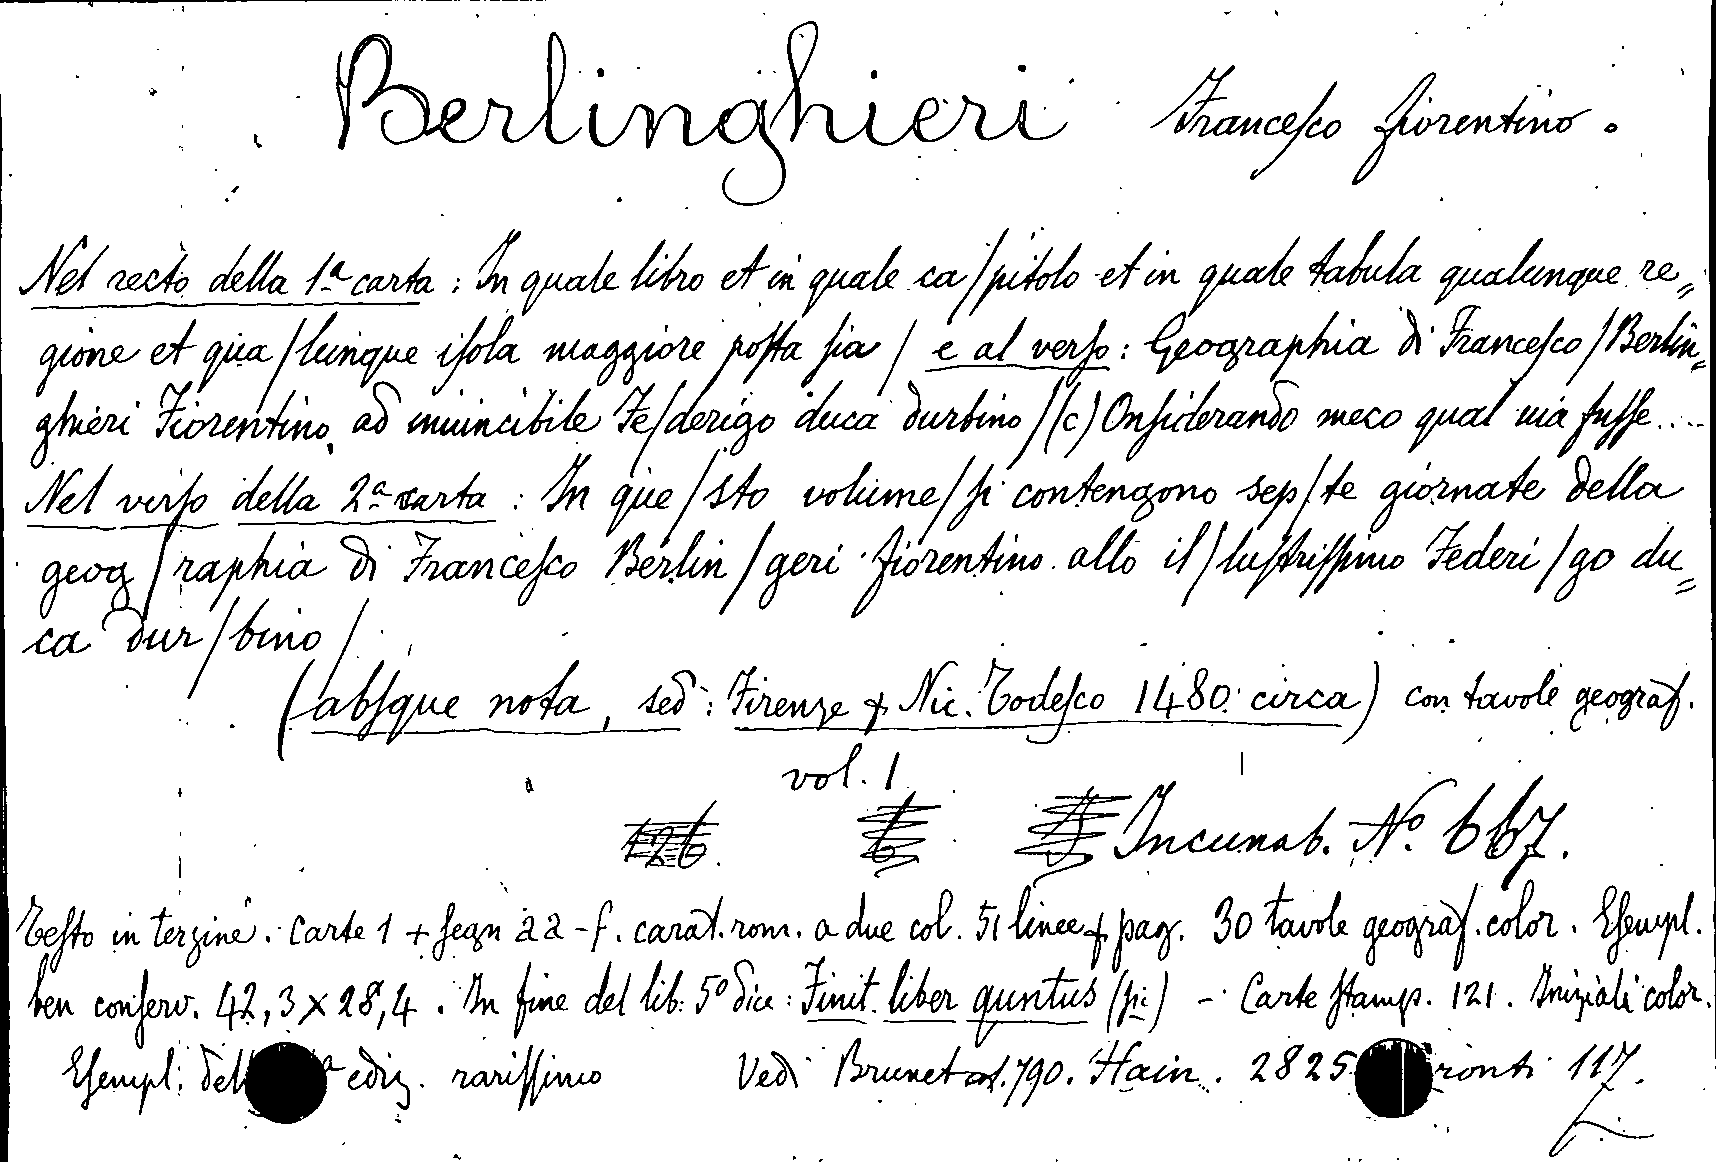 Berlinghieri Francesco fiorentino.
Nel recto della 1ª carta: In quale libro et in quale ca/pitolo et in quale tabula qualunque re=
gione et qua/lunque isola maggiore posta sia / e al verso: Geographia di Francesco / Berlin=
ghieri Fiorentino ad inuincibile Fe/derigo duca durbino / (c) Onsiderando meco qual uia fusse....
Nel verso della 2ª carta: In que/sto volume / si contengono sep/te giornate della
geog/raphia di Francesco Berlin/geri fiorentino allo il/lustrissimo Federi/go du=
ca dur/bino /
(absque nota, sed: Firenze Nic. Todesco 1480 circa) con tavole geograf.
vol. 1
Incunab. Nº 667.
Testo in terzine. Carte 1 + segn aa-f. carat. rom. a due col. 51 linee pag. 30 tavole geograf. color. Esempl.
ben conserv. 42,3 x 28,4. In fine del lib: 5º dice: Finit liber quntus (sic) - Carte stamp. 121. Iniziali color.
Esempl. ediz. rarissimo Vedi Brunet 790. Hain. 2825 117.